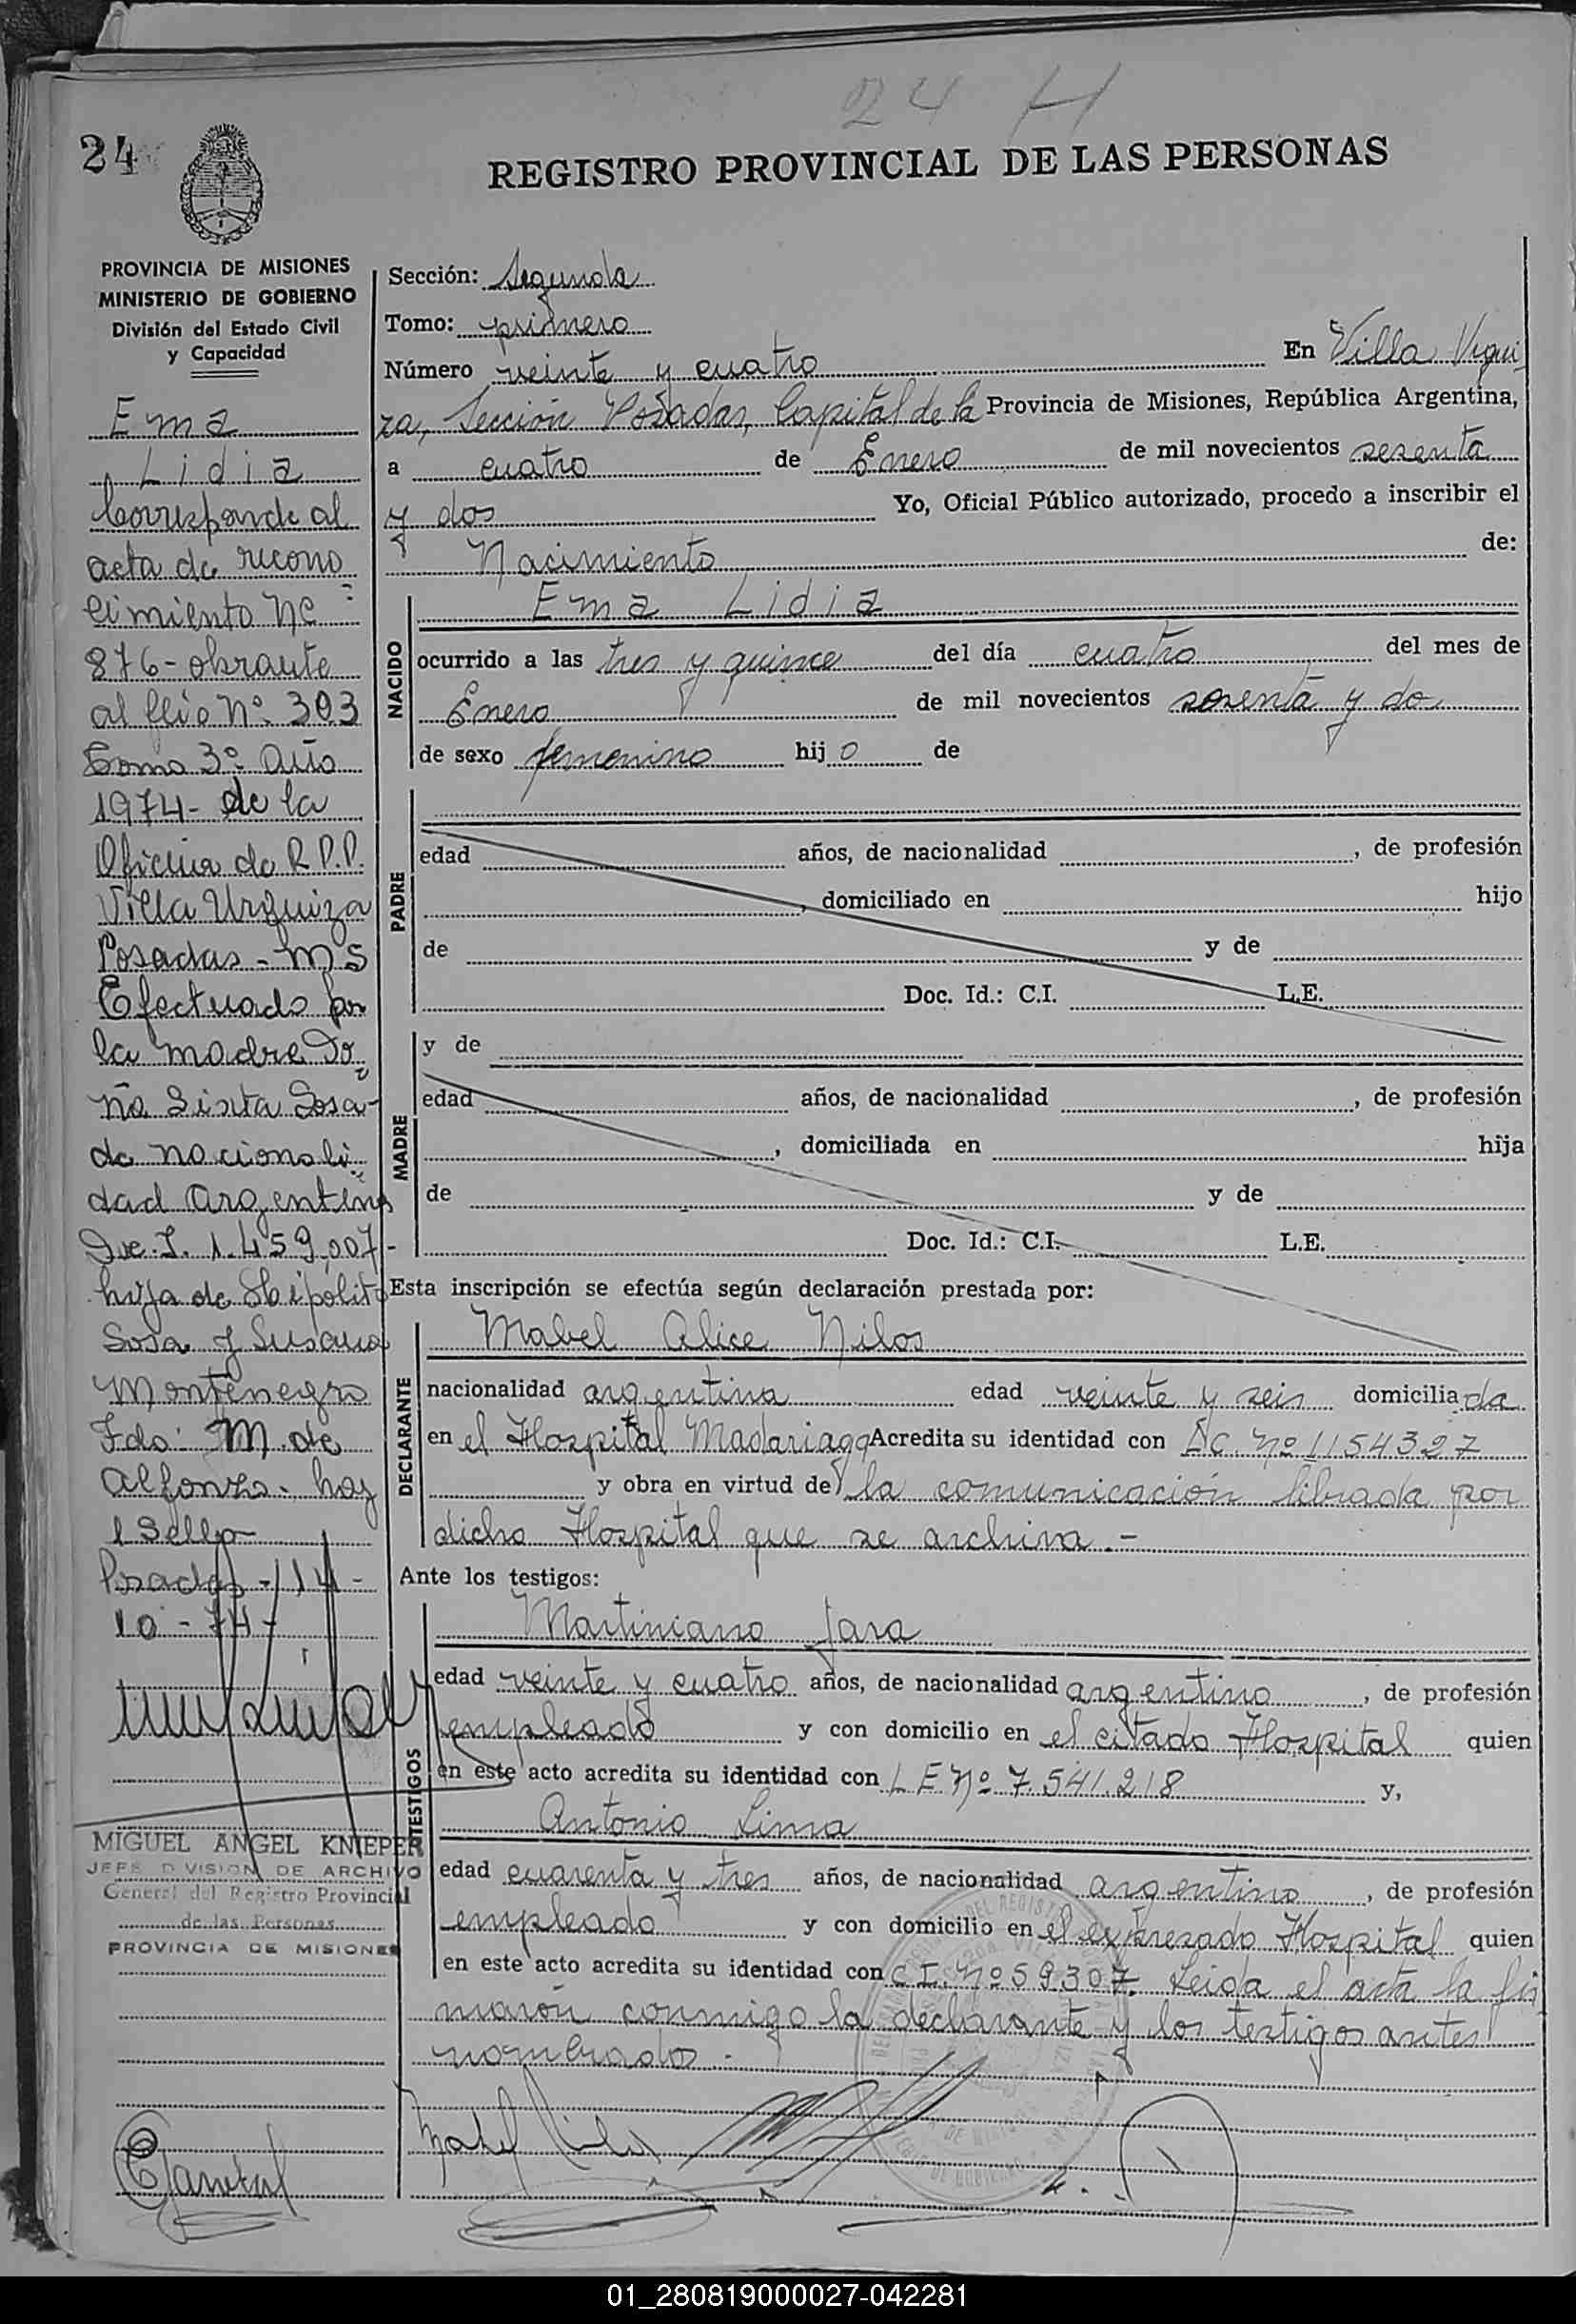 24 H
24
REGISTRO PROVINCIAL DE LAS PERSONAS
PROVINCIA DE MISIONES
MINISTERIO DE GOBIERNO
División del Estado Civil
y Capacidad
Ema
Lidia
Corresponde al
acta de recono
cimiento Nº
876 - obrante
al folio Nº 303
Tomo 3º Año
1974 - de la
Oficina de R.P.P.
Villa Urquiza
Posadas - Ms
Efectuado por
la madre Do
ña Sixta Sosa -
de nacionali
dad Argentina
1.459.007 -
hija de Hipólito
Sosa y Susana
Montenegro
Fdo: M. de
Alfonzo - hay
1 Sello
Posadas - 14 -
10 - 74 -
MIGUEL ANGEL KNIEPER
JEFE DIVISION DE ARCHIVO
General del Registro Provincial
de las Personas
PROVINCIA DE MISIONES
Sección: Segunda
Tomo: primero
Número veinte y cuatro En Villa Urqui
za, Sección Posadas, Capital de la Provincia de Misiones, República Argentina,
a cuatro de Enero de mil novecientos sesenta
y dos Yo, Oficial Público autorizado, procedo a inscribir el
Nacimiento de:
NACIDO
Ema Lidia
ocurrido a las tres y quince del día cuatro del mes de
Enero de mil novecientos sesenta y do
de sexo femenino hij o de
PADRE
edad años, de nacionalidad , de profesión
, domiciliado en hijo
de y de
Doc. Id.: C.I. L.E.
MADRE
y de
edad años, de nacionalidad , de profesión
, domiciliada en hija
de y de
Doc. Id.: C.I. L.E.
Esta inscripción se efectúa según declaración prestada por:
DECLARANTE
Mabel Alice Nilos
nacionalidad argentina edad veinte y seis domicilia da
en el Hospital Madariaga Acredita su identidad con Nº 1154327
y obra en virtud de la comunicación librada por
dicho Hospital que se archiva. -
Ante los testigos:
TESTIGOS
Martiniano Jara
edad veinte y cuatro años, de nacionalidad argentino , de profesión
empleado y con domicilio en el citado Hospital quien
en este acto acredita su identidad con L E Nº 7.541.218 y,
Antonio Lima
edad cuarenta y tres años, de nacionalidad argentino , de profesión
empleado y con domicilio en el expresado Hospital quien
en este acto acredita su identidad con C I. Nº 59.307. Leida el acta la fir
maron conmigo la declarante y los testigos antes
nombrados. -
01_280819000027-042281